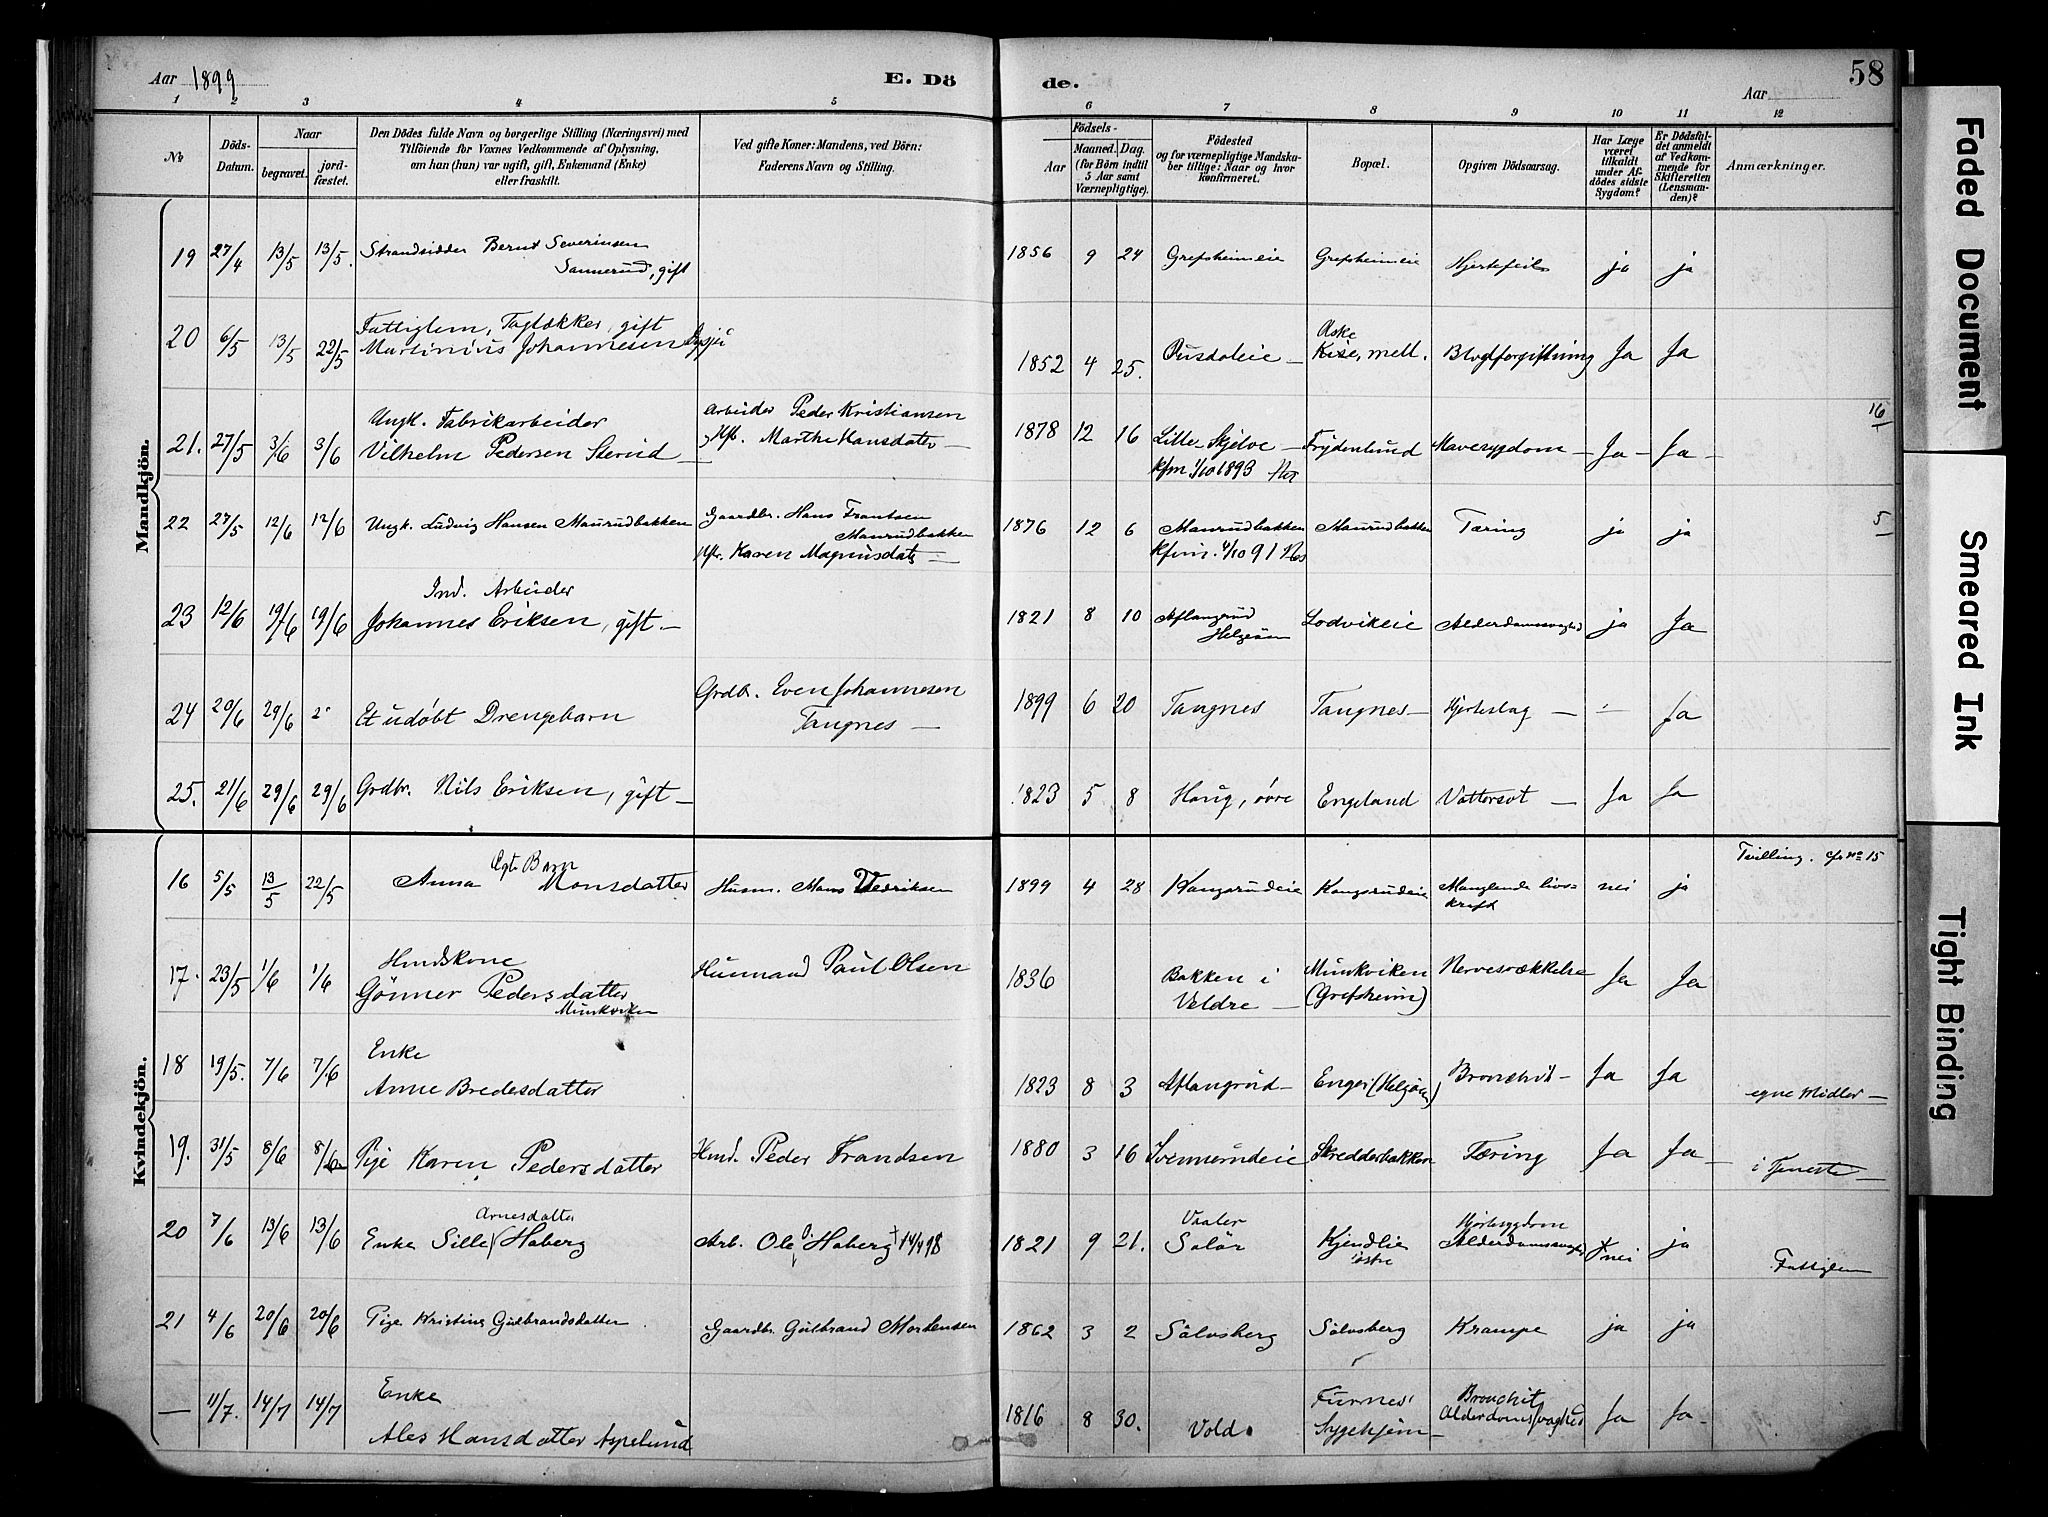 Aar 1899
E. Döde.
Aar
58
1 2 3 4 5 6 7 8 9 10 11 12
No
Döds-Datum.
Naar
begravet.
jordfæstet.
Den Dödes fulde Navn og borgerlige Stilling (Næringsvei) med
Tilföiende for Voxnes Vedkommende af Oplysning,
om han (hun) var ugift, gift, Enkemand (Enke)
eller fraskilt.
Ved gifte Koner: Mandens, ved Börn:
Faderens Navn og Stilling.
Födsels-
Aar
Maaned. Dag.
(for Börn indtil
5 Aar samt
Værnepligtige).
Födested
og for værnepligtige Mandskaber tillige: Naar og hvor
konfirmeret.
Bopæl.
Opgiven Dödsaarsag.
Har Læge
været
tilkaldt
under Afdödes sidste
Sygdom?
Er Dödsfaldet anmeldt
af Vedkommende for
Skifteretten
(Lensmanden)?
Anmærkninger.
Mandkjön.
19 27/4 13/5 13/5. Strandsidder Bernt Severinsen
Sannerud, gift
1856 9 24 Grefsheimeie Grefsheimeie Hjertefeil ja ja
20 6/5 13/5 22/5 Fattiglem, Tagtækker, gift
Martinius Johannesen
1852 4 25. Kise, mell. Blodforgiftning Ja Ja
21. 27/5 3/6 3/6 Ungk. Fabrikarbeider
Vilhelm Pedersen
Arbeider Peder Kristiansen
Marthe Hansdatter
1878 12 16 Lille-Skjelve Frydenlund Mavesygdom Ja Ja
Kfm 1/10 1893 Nes
16
22 27/5 12/6 12/6 Ungk. Ludvig Hansen Maurudbakken
Gaardbr. Hans Frantsen
Maurudbakken
Karen Magnusdatr
1876 12 6 Maurudbakken Maurudbakken Tæring ja ja
Kfm. 4/10 91 Nes
5
23 12/6 19/6 19/6 Ind. Arbeider
Johannes Eriksen, gift
1821 8 10 Aflangrud
Helgøen Lodvikeie Alderdomssvaghed ja Ja
24 20/6 29/6 Et udøbt Drengebarn
Grdbr. Even Johannesen
Tangnes
1899 6 20 Tangnes Tangnes Hjerteslag - Ja
25. 21/6 29/6 29/6 Grdbr. Nils Eriksen, gift
1823 5 8 Haug, øvre Engeland Vattersot Ja Ja
Kvindekjön.
16 5/5 13/5 22/5 Ægte Barn
Anna Monsdatter Husm. Mons
1899 4 28 Kangsrudeie Kangsrudeie Manglende livskraft nei ja Tvilling. cfr No 15
17. 23/5 1/6 1/6 Husmandskone
Gönner Pedersdatter
Munkviken
Husmand Paul Olsen
1836 Bakken i
Veldre Munkviken
(Grefsheim) Nervesvækkelse Ja Ja
18 19/5. 7/6 7/6 Enke
Anne Bredesdatter
1823 8 3 Aflangrud Enger (Helgøen) Bronchit Ja Ja egne Midler
19. 31/5 8/6 8/6 Pige Karen Pedersdatter Hmd. Peder Frandsen
1880 3 16 Svennerudeie Skredderbakken Tæring Ja Ja i Tjeneste
20 7/6 13/6 13/6 Arnesdatter
Enke Sille Haberg Arb. Ole Haberg † 14/4 98
1821 9 21. Vaaler
Solör Kjendlie
østre Hjertesygdom
Alderdomssvaghed nei ja Fattiglem
21 4/6 20/6 20/6 Pige Kristine Gulbrandsdatter Gaardbr. Gulbrand Mortensen
1862 3 2 Sölvsberg Sölvsberg Krampe ja ja
— 11/7. 14/7 14/7 Enke
Ales Hansdatter Aspelund
1816 8 30. Vold Furnes
Sygehjem Bronchit
Alderdomssvaghed Ja Ja
Faded Document
Smeared Ink
Tight Binding